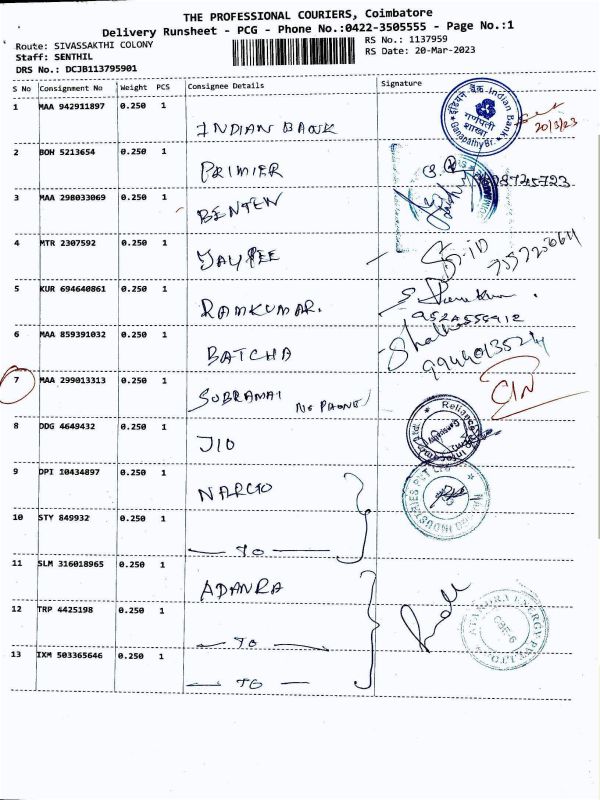 THE PROFESSIONAL COURIERS, Coimbatore
Delivery Runsheet - PCG - Phone No.:0422-3505555 - Page No.:1
Route: SIVASSAKTHI COLONY
RS No.: 1137959
Staff: SENTHIL
RS Date: 20-Mar-2023
DRS No.: DCJB113795901
S No Consignment No Weight PCS Consignee Details Signature
1 MAA 942911897 0.250 1 INDIAN BANK
इंडियन बैंक Indian Bank
गणपती
शाखा
Ganapathy Br.
20/3/23
2 BOH 5213654 0.250 1 PRIMIER
3 MAA 298033069 0.250 1 BENTEN
4 MTR 2307592 0.250 1 JAYPEE
5 KUR 694640861 0.250 1 RAMKUMAR.
9524556912
6 MAA 859391032 0.250 1 BATCHA
9944013524
7 MAA 299013313 0.250 1 SUBRAMAI NO PHONE
8 DDG 4649432 0.250 1 JIO
Reliance
9 DPI 10434897 0.250 1 NARCO
10 STY 849932 0.250 1 — TO —
11 SLM 316018965 0.250 1 ADANRA
12 TRP 4425198 0.250 1 — TO —
CBE-6
13 IXM 503365646 0.250 1 — TO —